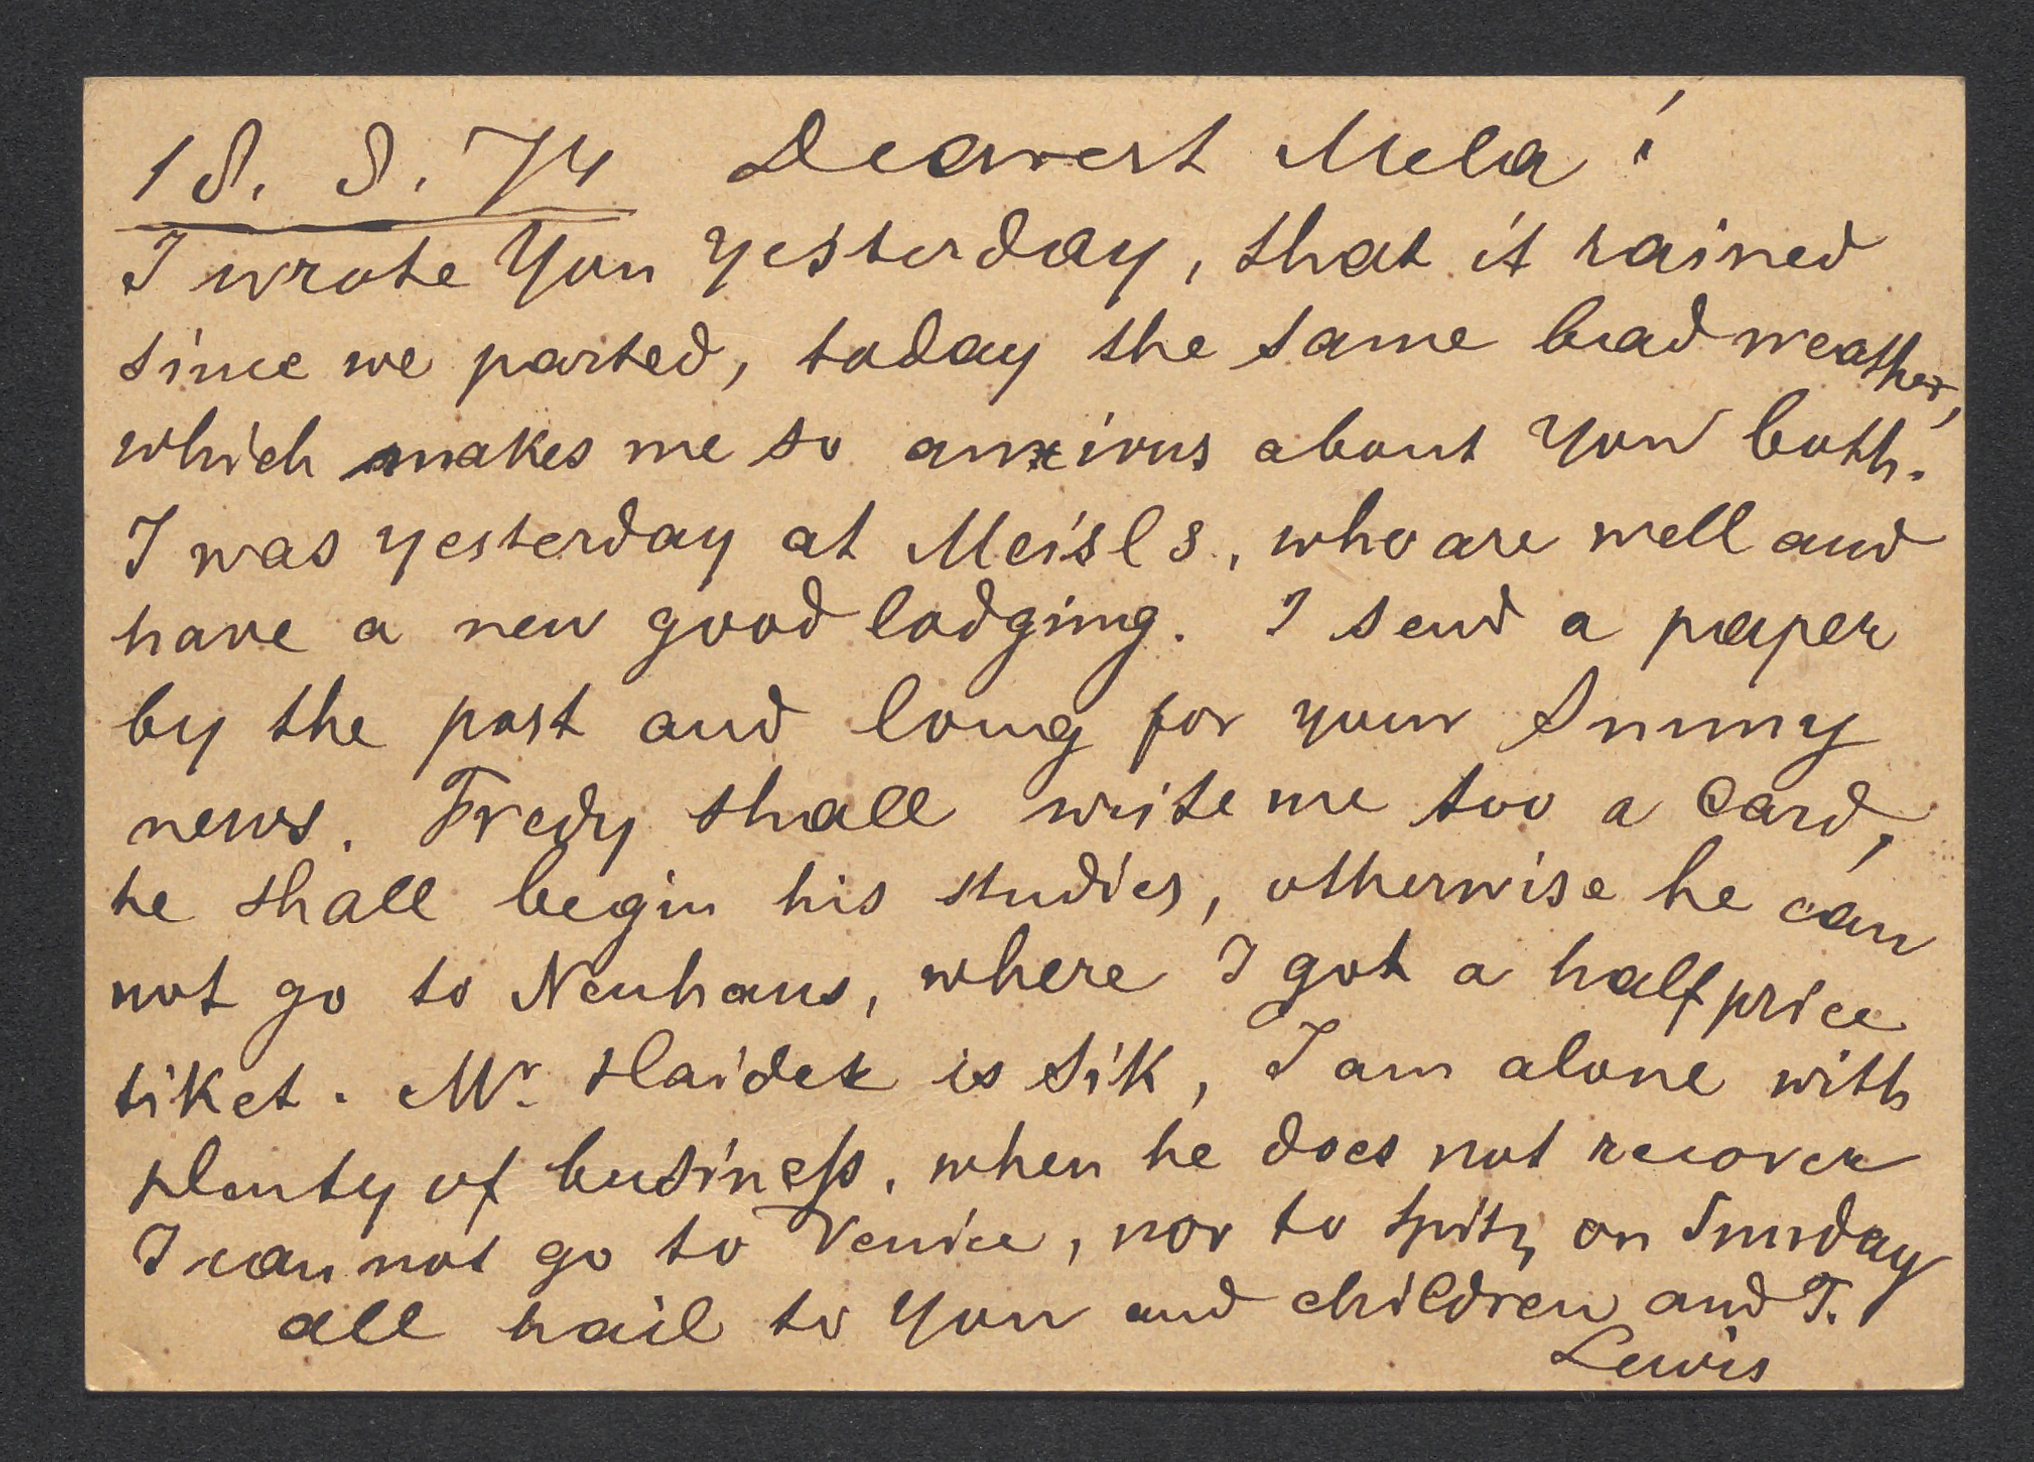 18. 8. 74 Dearest Mela!
I wrote You yesterday, that it rained
since we parted, today the same bad weather,
which makes me so anxious about You both.
I was yesterday at Meisls, who are well and
have a new good lodging. I send a paper
by the post and long for your Sunny
news. Fredy shall write me too a Card,
he shall begin his studies, otherwise he can
not go to Neuhaus, where I got a half price
tiket. Mr. Haidek is sik, I am alone with
plenty of business, when he does not recover
I can not go to Venice, nor to Spitz on Sunday
all hail to You and children and T.
Lewis